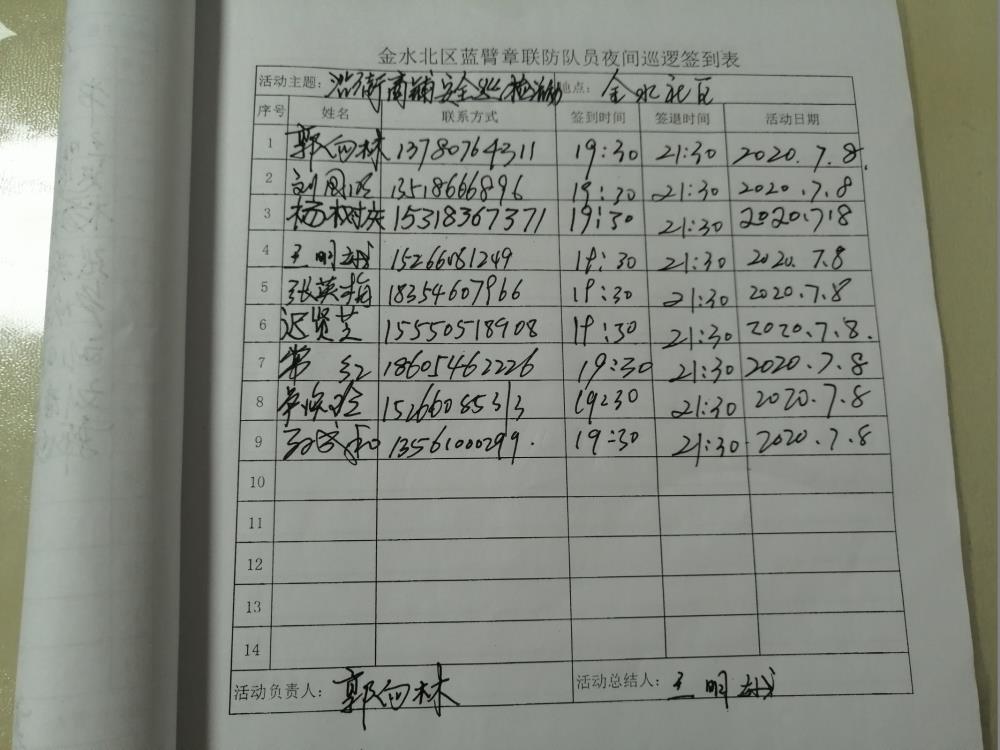 金水北区蓝臂章联防队员夜间巡逻签到表
活动主题: 沿街商铺安全 地点: 金水社区
序号 姓名 联系方式 签到时间 签退时间 活动日期
1 郭向林 13780764311 19:30 21:30 2020.7.8.
2 刘国 13518666896 19:30 21:30 2020.7.8
3 杨树 15318367371 19:30 21:30 2020.7.8
4 王明 15266081249 19:30 21:30 2020.7.8
5 张英梅 18354607966 19:30 21:30 2020.7.8
6 迟贤芝 15550518908 19:30 21:30 2020.7.8.
7 常红 18605462226 19:30 21:30 2020.7.8
8 15266085313 19:30 21:30 2020.7.8
9 13561000299. 19:30 21:30 2020.7.8
10
11
12
13
14
活动负责人: 郭向林 活动总结人: 王明